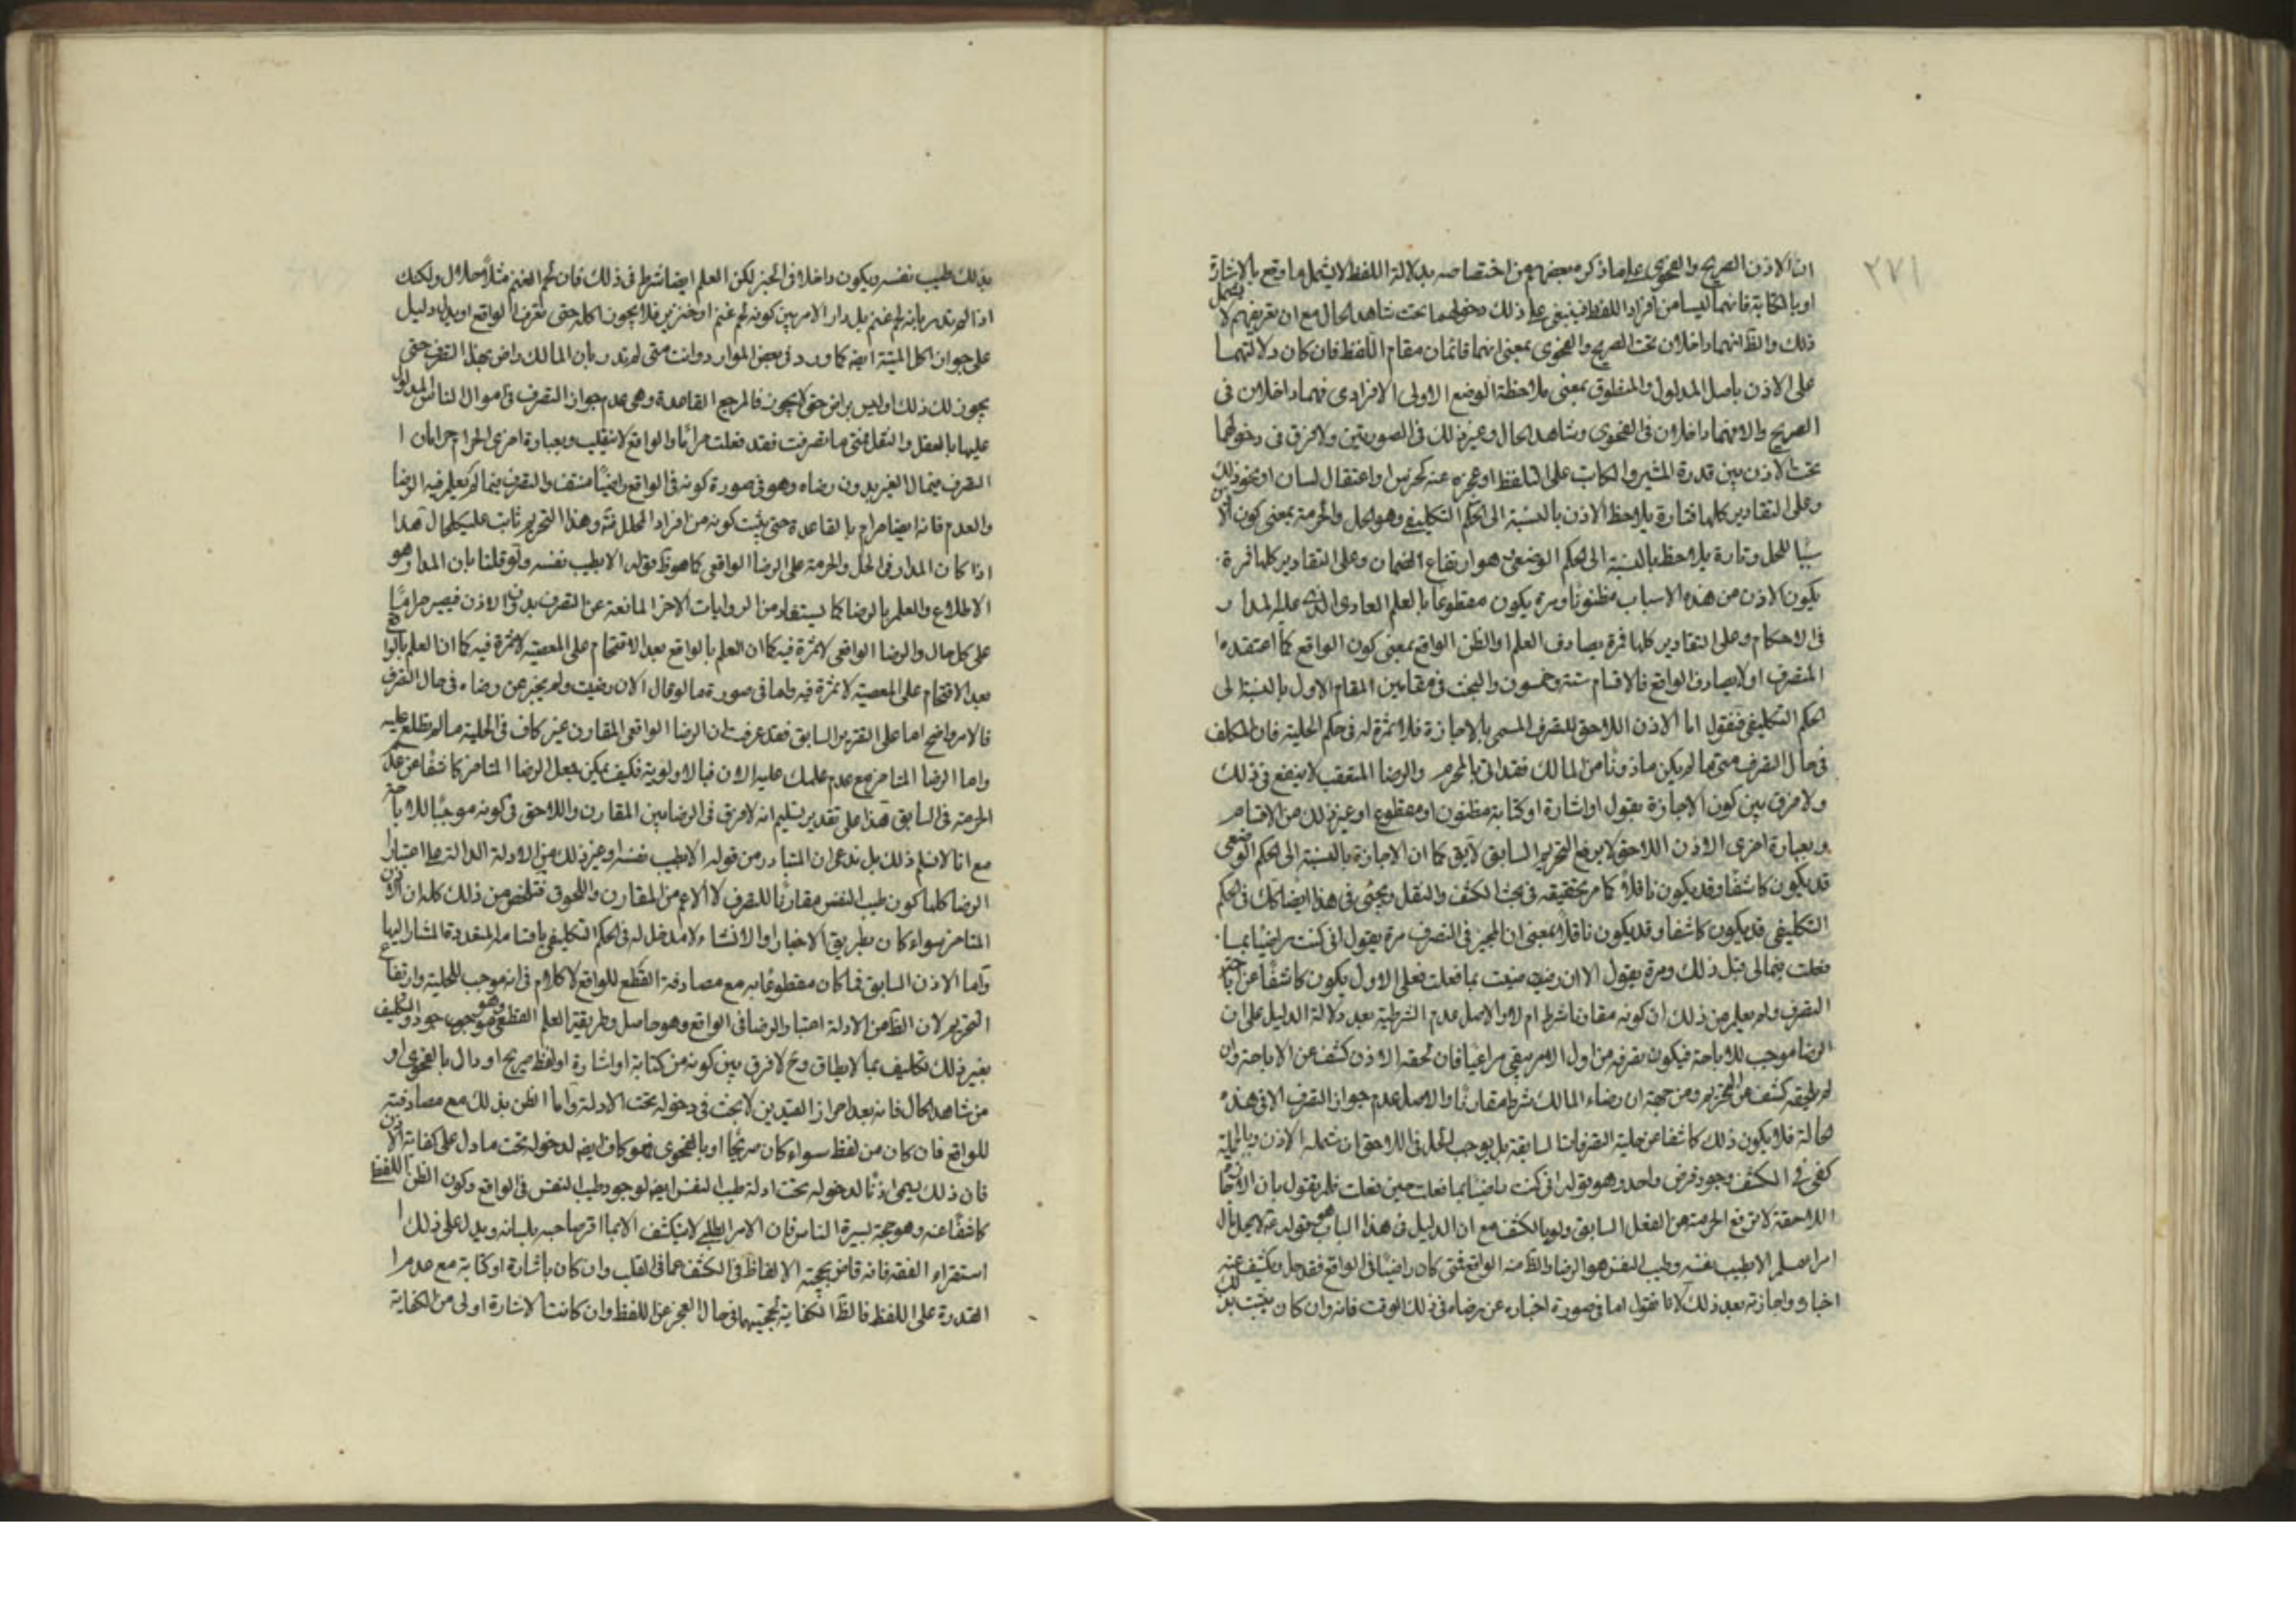 ٢٧١
ان الاذن الصريح والفحوى على ما ذكر بعضهم من اختصاصه بدلالة اللفظ لا يشمل ما وقع بالاشارة
او بالكتابة فانهما ليسا من افراد اللفظ فينبغى على ذلك دخولهما تحت شاهد الحال مع ان تعريفهم لا يشمل
ذلك والظ انهما داخلان تحت الصريح والفحوى بمعنى انهما قائمان مقام اللفظ فان كان دلالتهما
على الاذن باصل المدلول والمنطوق بمعنى ملاحظة الوضع الاولى الافرادى فهما داخلان فى
الصريح والا فهما داخلان فى الفحوى وشاهد الحال وغير ذلك فى الصورتين ولا فرق فى دخولهما
تحت الاذن بين قدرة المشير والكاتب على التلفظ او عجزه عنه كخرس او اعتقال لسان او نحو ذلك
وعلى التقادير كلها فتارة يلاحظ الاذن بالنسبة الى الحكم التكليفى وهو الحل والحرمة بمعنى كون الاذن
سببا للحل وتارة يلاحظ بالنسبة الى الحكم الوضعى وهو ارتفاع الضمان وعلى التقادير كلها فمرة
يكون الاذن من هذه الاسباب مظنونا ومرة يكون مقطوعا بالعلم العادى الذى عليه المدار
فى الاحكام وعلى التقادير كلها فمرة يصادف العلم او الظن الواقع بمعنى كون الواقع كما اعتقده
المتصرف او لا يصادف الواقع فالاقسام ستة وخمسون والبحث فى مقامين المقام الاول بالنسبة الى
الحكم التكليفى فنقول اما الاذن اللاحق للتصرف المسمى بالاجازة فلا ثمرة له فى حكم الحلية فان المكلف
فى حال التصرف متى ما لم يكن ماذونا من المالك فقد اتى بالمحرم والرضا المتعقب لا ينفع فى ذلك
ولا فرق بين كون الاجازة بقول او اشارة او كتابة مظنون او مقطوع او غير ذلك من الاقسام
وبعبارة اخرى الاذن اللاحق لا يرفع التحريم السابق لا يق كما ان الاجازة بالنسبة الى الحكم الوضعى
قد يكون كاشفا وقد يكون ناقلا كما مر تحقيقه فى بحث الكشف والنقل ويجئ فى هذا ايضا كك فى الحكم
التكليفى قد يكون كاشفا وقد يكون ناقلا بمعنى ان المجيز فى التصرف مرة يقول انى كنت راضيا بما
فعلت بمالى قبل ذلك ومرة يقول الان رضيت بما فعلت فعلى الاول يكون كاشفا عن اباحة
التصرف ولم يعلم من ذلك ان كونه مقارنا شرط ام لا والاصل عدم الشرطية بعد دلالة الدليل على ان
الرضا موجب للاباحة فيكون تصرفه من اول الامر يبقى مراعيا فان لحقه الاذن كشف عن الاباحة وان
لم يلحقه كشف عن التحريم ومن حجة ان رضاء المالك شرط مقارنا والاصل عدم جواز التصرف الا فى هذه
الحالة فلا يكون ذلك كاشفا عن حلية التصرفات السابقة بل يوجب الحل فى اللاحق ان شمله الاذن وبالجملة
كفى فى الكشف وجود فرض واحد وهو بقوله انى كنت راضيا بما فعلت حين فعلت فلم يقول بان الاجازة
اللاحقة لا ترفع الحرمة عن الفعل السابق ولو بالكشف مع ان الدليل فى هذا الباب هو قوله ع لا يحل مال
امرء مسلم الا بطيب نفسه وطيب النفس هو الرضا والظ منه الواقع فمتى كان راضيا فى الواقع فقد حل ويكشف عنه
اخباره واجازته بعد ذلك لانا نقول اما فى صورة اخباره عن رضاه فى ذلك الوقت فانه وان كان يثبت بذلك
بذلك طيب نفسه ويكون داخلا فى الخبر لكن العلم ايضا شرط فى ذلك فان لحم الغنم مثلا حلال ولكنك
اذا لم تدر بانه لحم غنم بل دار الامر بين كونه لحم غنم او خنزير فلا يجوز اكله حتى تعرف الواقع او يدل دليل
على جواز اكل الميتة ايضا كما ورد فى بعض الموارد وانت متى لم تدر بان المالك راض بهذا التصرف حتى
يجوز لك ذلك او ليس براض حتى لا يجوز فالمرجع القاعدة وهى عدم جواز التصرف فى اموال الناس المدلول
عليها بالعقل والنقل فمتى ما تصرفت فقد فعلت حراما والواقع لا ينقلب وبعبارة اخرى الحرام حرامان
التصرف بمال الغير بدون رضاه وهو فى صورة كونه فى الواقع راضيا منتف والتصرف بما لم يعلم فيه الرضا
والعدم فانه ايضا حرام بالقاعدة حتى يثبت كونه من افراد المحلل منه وهذا التحريم ثابت على كل حال هذا
اذا كان المدار فى الحل والحرمة على الرضا الواقعى كما هو ظ قوله الا بطيب نفسه ولو قلنا بان المدار هو
الاطلاع والعلم بالرضا كما يستفاد من الروايات الاخر المانعة عن التصرف بدون الاذن فيصير حراما
على كل حال والرضا الواقعى لا ثمرة فيه كما ان العلم بالواقع بعد الاقتحام على المعصية لا ثمرة فيه كما ان العلم بالواقع
بعد الاقتحام على المعصية لا ثمرة فيه واما فى صورة ما لو قال الان رضيت ولم يخبر عن رضاه فى حال التصرف
فالامر واضح اما على التقرير السابق فقد عرفت ان الرضا الواقعى المقارن غير كاف فى الحلية ما لم يطلع عليه
واما الرضا المتاخر مع عدم علمك عليه الان فبالاولوية فكيف يمكن جعل الرضا المتاخر كاشفا عن عدم
الحرمة فى السابق هذا على تقدير تسليم انه لا فرق فى الرضا بين المقارن واللاحق فى كونه موجبا للاباحة
مع انا لا نسلم ذلك بل ندعى ان المتبادر من قوله الا بطيب نفسه او غير ذلك من الادلة الدالة على اعتبار
الرضا كلها كون طيب النفس مقارنا للتصرف لا الاعم من المقارن واللحوق فتلخص من ذلك كله ان الاذن
المتاخر سواء كان بطريق الاخبار او الانشاء لا مدخل له فى الحكم التكليفى باقسامه المتعددة المشار اليها
واما الاذن السابق فما كان مقطوعا به مع مصادفة القطع للواقع لا كلام فى انه موجب للحلية وارتفاع
التحريم لان الظ من الادلة اعتبار الرضا فى الواقع وهو حاصل وطريقية العلم القطعى وهو موجود والتكليف
بغير ذلك تكليف بما لا يطاق وح لا فرق بين كونه من كتابة او اشارة او لفظ صريح او دال بالفحوى او
من شاهد الحال فانه بعد احراز القيدين لا بحث فى دخوله تحت الادلة واما الظن بذلك مع مصادفته
للواقع فان كان من لفظ سواء كان صريحا او بالفحوى فهو كاف ايضا لدخوله تحت ما دل على كفاية الاذن
فان ذلك يسمى اذنا لدخوله تحت ادلة طيب النفس ايضا لوجود طيب النفس فى الواقع وكون الظن اللفظى
كاشفا عنه وهو حجة بسيرة الناس فان الامر الطلبى لا ينكشف الا بما اقر صاحبه بلسانه ويدل على ذلك
استقراء الفقه فانه قاض بحجية الالفاظ فى الكشف عما فى القلب وان كان باشارة او كتابة مع عدم
القدرة على اللفظ فالظ الكفاية لحجيتهما فى حال العجز عن اللفظ وان كانت الاشارة اولى من الكتابة